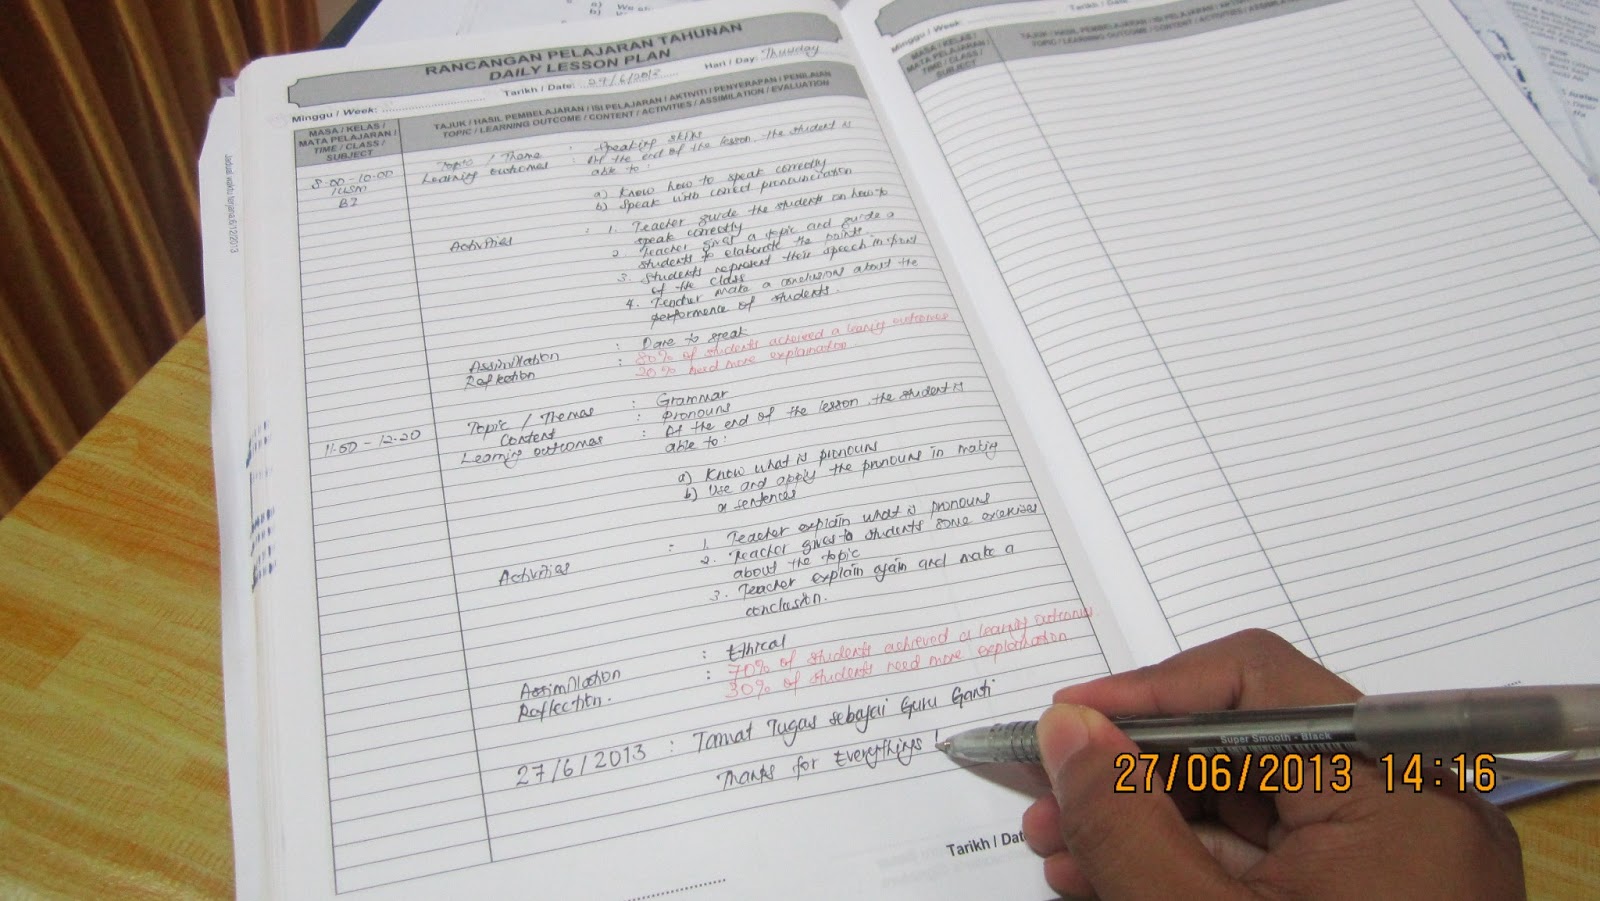 RANCANGAN PELAJARAN TAHUNAN
DAILY LESSON PLAN
Minggu / Week:
Tarikh / Date: 27/6/2013
Hari / Day: Thursday
MASA / KELAS /
MATA PELAJARAN /
TIME / CLASS /
SUBJECT
TAJUK / HASIL PEMBELAJARAN / ISI PELAJARAN / AKTIVITI / PENYERAPAN / PENILAIAN
TOPIC / LEARNING OUTCOME / CONTENT / ACTIVITIES / ASSIMILATION / EVALUATION
8.00 - 10.00
BI
Topic / Theme : Speaking skills
Learning outcomes : At the end of the lesson, the student is
able to :
a) Know how to speak correctly
b) Speak with correct pronunciation
Activities : 1. Teacher guide the students on how to
speak correctly
2. Teacher gives a topic and guide a
students to elaborate the points
3. Students represent their speech in front
of the class
4. Teacher make a conclusion about the
performence of students.
Assimilation : Dare to speak
Reflection : 80% of students achieved a learnig outcomes
20% need more explaination
11.50 - 12.20
Topic / Themes : Grammar
Content : Pronouns
Learning outcomes : At the end of the lesson, the student is
able to :
a) Know what is pronouns
b) Use and apply the pronouns in making
a sentences
Activities : 1. Teacher explain what is pronouns
2. Teacher gives to students some exercises
about the topic
3. Teacher explain again and make a
conclusion.
Assimilation : Ethical
Reflection. : 70% of students achieved a learnig outcomes.
30% of students need more explaination
27/6/2013 : Tamat Tugas sebagai Guru Ganti
Thanks for Everythings !
Tarikh / Dat
Minggu / Week:
Tarikh / Date:
MASA / KELAS /
MATA PELAJARAN /
TIME / CLASS /
SUBJECT
TAJUK / HASIL PEMBELAJARAN / ISI PELAJARAN /
TOPIC / LEARNING OUTCOME / CONTENT / ACTIVITIES /
Super Smooth - Black
27/06/2013 14:16